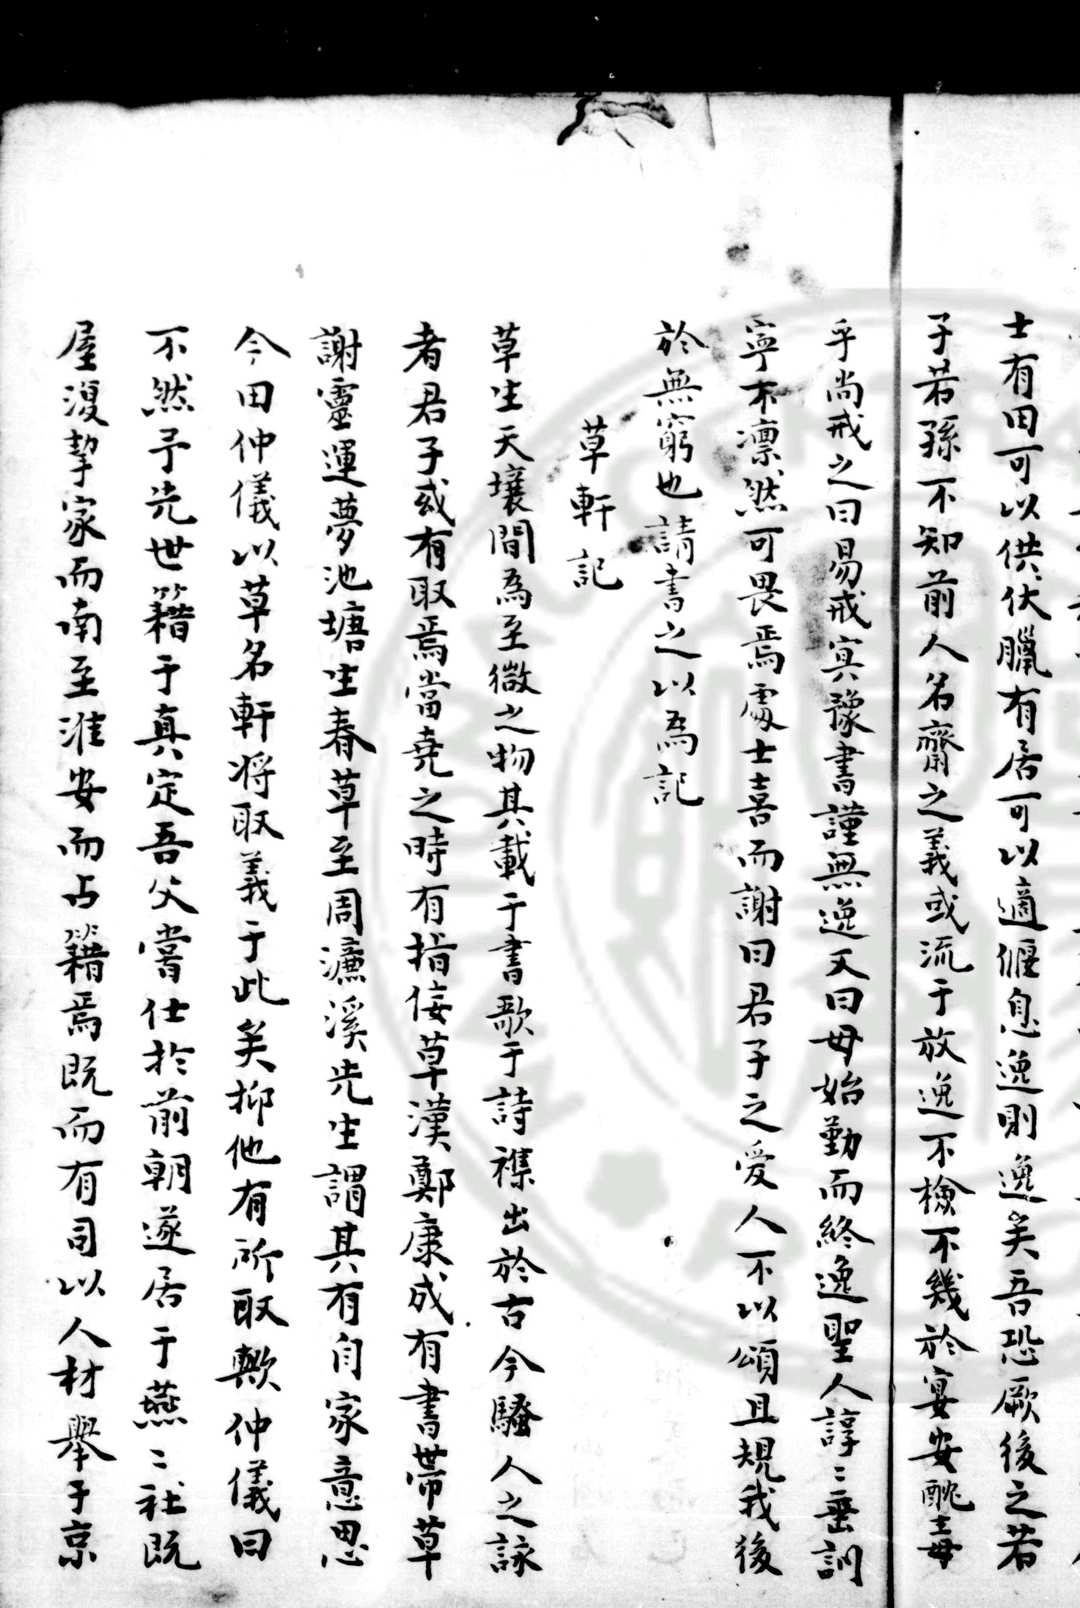 士有田可以供伏臘有居可以適偃息逸則逸矣吾恐厥後之若
子若孫不知前人名齋之義或流于放逸不檢不幾於宴安酖毒
乎尚戒之曰易戒冥豫書謹無逸又曰毋始勤而終逸聖人諄〻垂訓
寧不凛然可畏焉處士喜而謝曰君子之愛人不以頌且規我後
於無窮也請書之以為記
草軒記
草生天壤間為至微之物其載于書歌于詩襍出於古今騷人之詠
者君子或有取焉當堯之時有指佞草漢鄭康成有書帶草
謝靈運夢池塘生春草至周濂溪先生謂其有自家意思
今田仲儀以草名軒将取義于此矣抑他有所取歟仲儀曰
不然予先世籍于真定吾父嘗仕於前朝遂居于燕〻社既
屋復挈家而南至淮安而占籍焉既而有司以人材舉予京